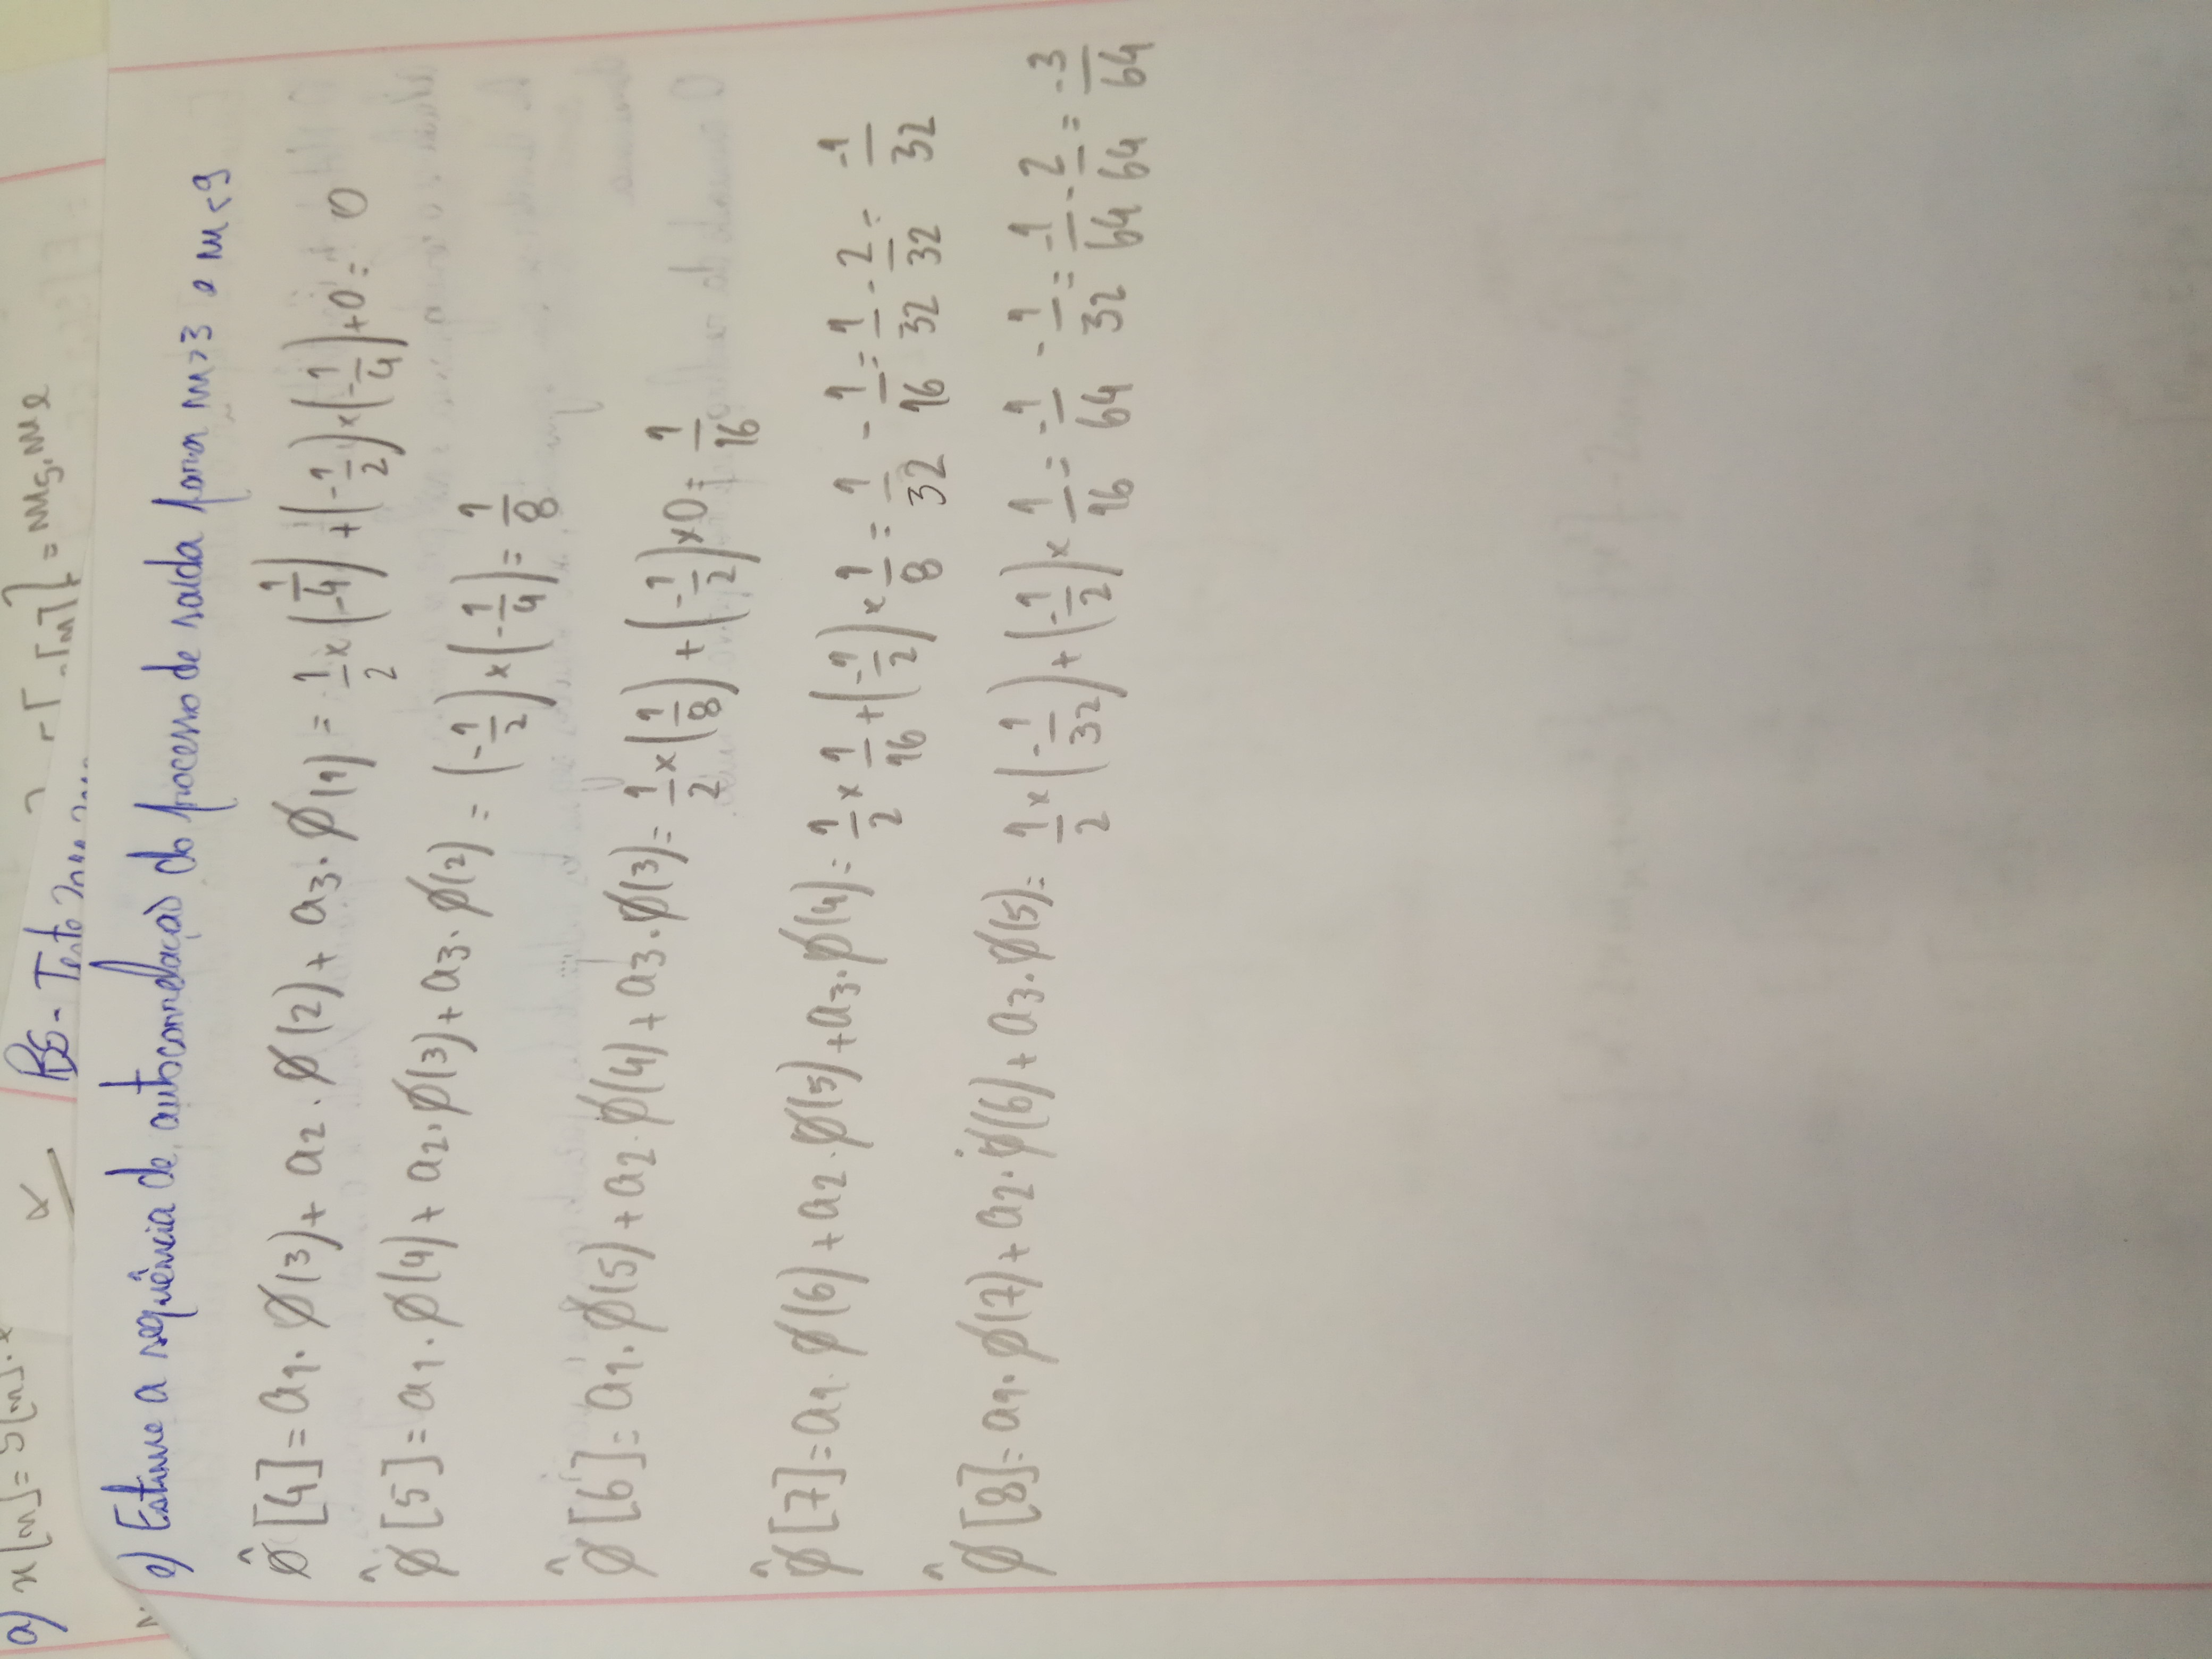 a) x[n] = S[n].
α
BS - Teste
} = ms.me
e) Estime a sequência de autocorrelação do processo de saída para m>3 e m<9
φ̂[4] = a1.φ(3) + a2.φ(2) + a3.φ(1) = 1/2 × (-1/4) + (-1/2) × (-1/4) + 0 = 0
φ̂[5] = a1.φ(4) + a2.φ(3) + a3.φ(2) = (-1/2) × (-1/4) = 1/8
φ̂[6] = a1.φ(5) + a2.φ(4) + a3.φ(3) = 1/2 × (1/8) + (-1/2) × 0 = 1/16
φ̂[7] = a1.φ(6) + a2.φ(5) + a3.φ(4) = 1/2 × 1/16 + (-1/2) × 1/8 = 1/32 - 1/16 = 1/32 - 2/32 = -1/32
φ̂[8] = a1.φ(7) + a2.φ(6) + a3.φ(5) = 1/2 × (-1/32) + (-1/2) × 1/16 = -1/64 - 1/32 = -1/64 - 2/64 = -3/64